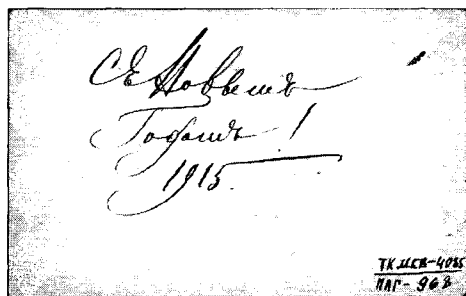 Съ Новымъ
Годомъ!
1915.
ТКМКВ-4085
ПАГ-968